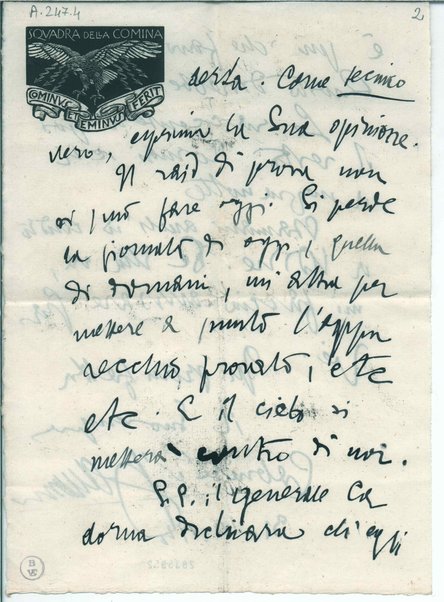 A.247.4
2
SQVADRA DELLA COMINA
COMINVS ET EMINVS FERIT
certa. Come tecnico
vero, esprima la Sua opinione.
Il raid di prova non
si può fare oggi. Si perde
la giornata di oggi, quella
di domani, un'altra per
mettere a punto l'appa
recchio, provato, etc
etc. E il cielo si
metterà contro di noi.
S.E. il generale Ca
dorna dichiara ch'egli